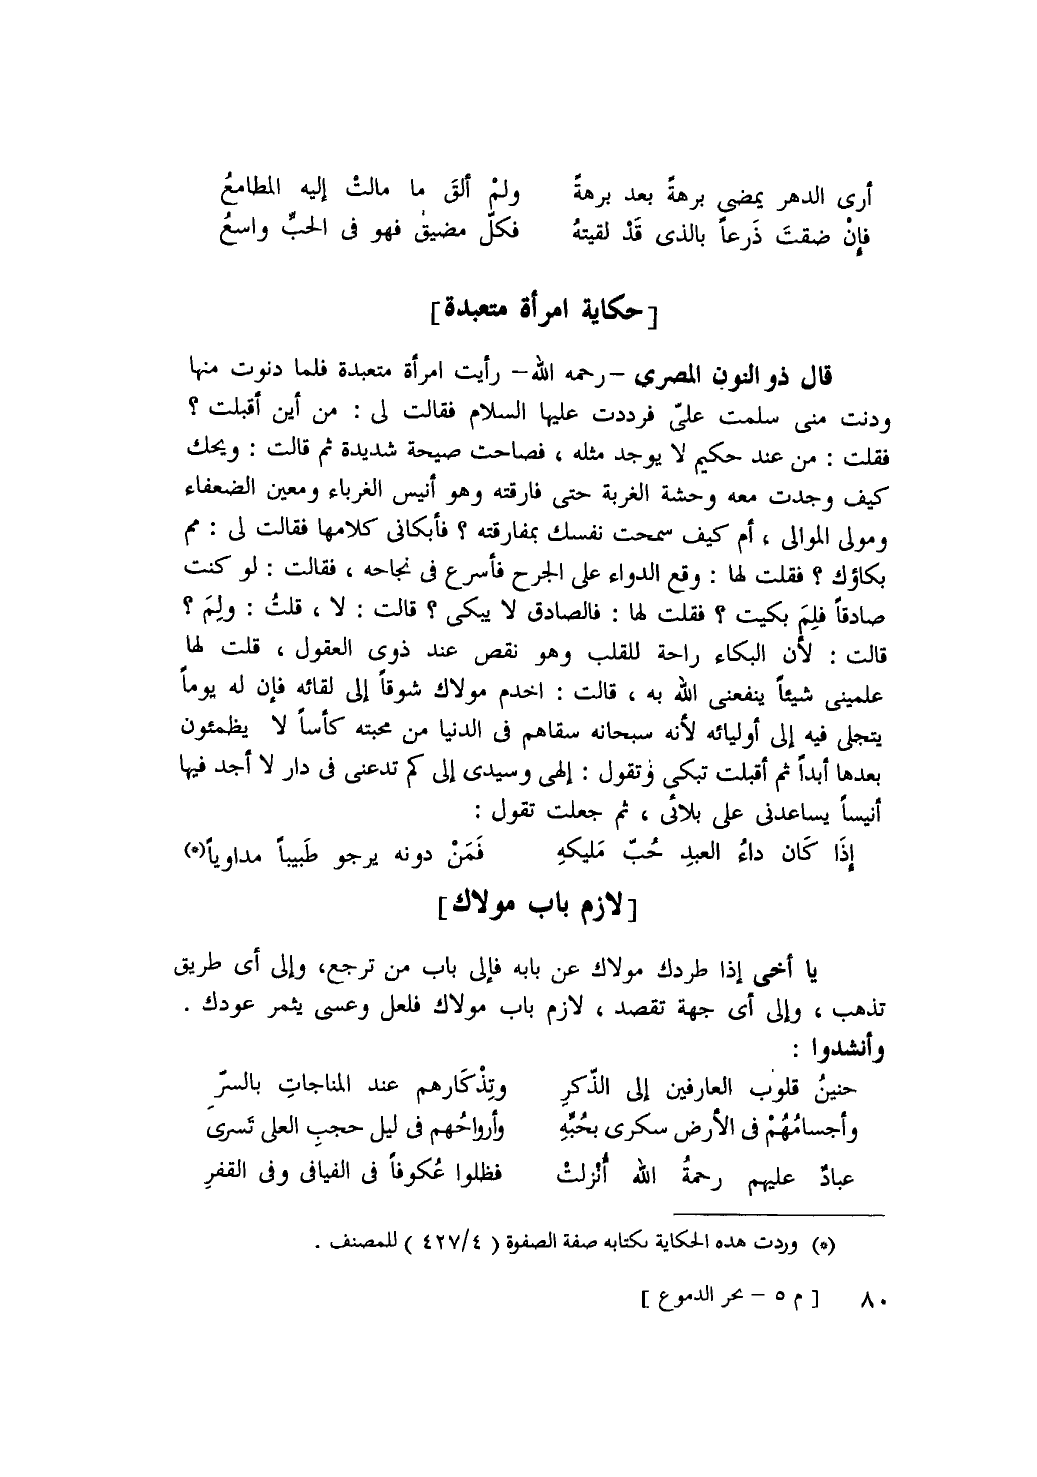 أرى الدهر يمضي برهةً بعد برهةً ولمْ ألقَ ما مالتْ إليه المطامعُ
فإنْ ضقتَ ذَرعاً بالذى قَدْ لقيتهُ فكلّ مضيق فهو فى الحبِّ واسعُ
[ حكاية امرأة متعبدة ]
قال ذو النون المصرى –رحمه الله– رأيت امرأة متعبدة فلما دنوت منها
ودنت منى سلمت علىّ فرددت عليها السلام فقالت لى : من أين أقبلت ؟
فقلت : من عند حكيم لا يوجد مثله ، فصاحت صيحة شديدة ثم قالت : ويحك
كيف وجدت معه وحشة الغربة حتى فارقته وهو أنيس الغرباء ومعين الضعفاء
ومولى الموالى ، أم كيف سمحت نفسك بمفارقته ؟ فأبكانى كلامها فقالت لى : مم
بكاؤك ؟ فقلت لها : وقع الدواء على الجرح فأسرع فى نجاحه ، فقالت : لو كنت
صادقاً فلِمَ بكيت ؟ فقلت لها : فالصادق لا يبكى ؟ قالت : لا ، قلتُ : ولِمَ ؟
قالت : لأن البكاء راحة للقلب وهو نقص عند ذوى العقول ، قلت لها
علمينى شيئاً ينفعنى الله به ، قالت : اخدم مولاك شوقاً إلى لقائه فإن له يوماً
يتجلى فيه إلى أوليائه لأنه سبحانه سقاهم فى الدنيا من محبته كأساً لا يظمئون
بعدها أبداً ثم أقبلت تبكى وتقول : إلهى وسيدى إلى كم تدعنى فى دار لا أجد فيها
أنيساً يساعدنى على بلائى ، ثم جعلت تقول :
إِذَا كَان داءُ العبدِ حُبّ مَليكهِ فَمَنْ دونه يرجو طَبيباً مداوياً(*)
[ لازم باب مولاك ]
يا أخى إذا طردك مولاك عن بابه فإلى باب من ترجع، وإلى أى طريق
تذهب ، وإلى أى جهة تقصد ، لازم باب مولاك فلعل وعسى يثمر عودك .
وأنشدوا :
حنينُ قلوب العارفين إلى الذّكرِ وتِذْكَارهم عند المناجاتِ بالسرّ
وأجسامُهُمْ فى الأرض سكرى بحُبِّهِ وأرواحُهم فى ليل حجبِ العلى تَسرىَ
عبادٌ عليهم رحمةُ الله أُنْزلتْ فظلوا عُكوفاً فى الفيافى وفى القفرِ
(*) وردت هده الحكاية بكتابه صفة الصفوة ( ٤٢٧/٤ ) للمصنف .
٨٠ [ م ٥ – بحر الدموع ]